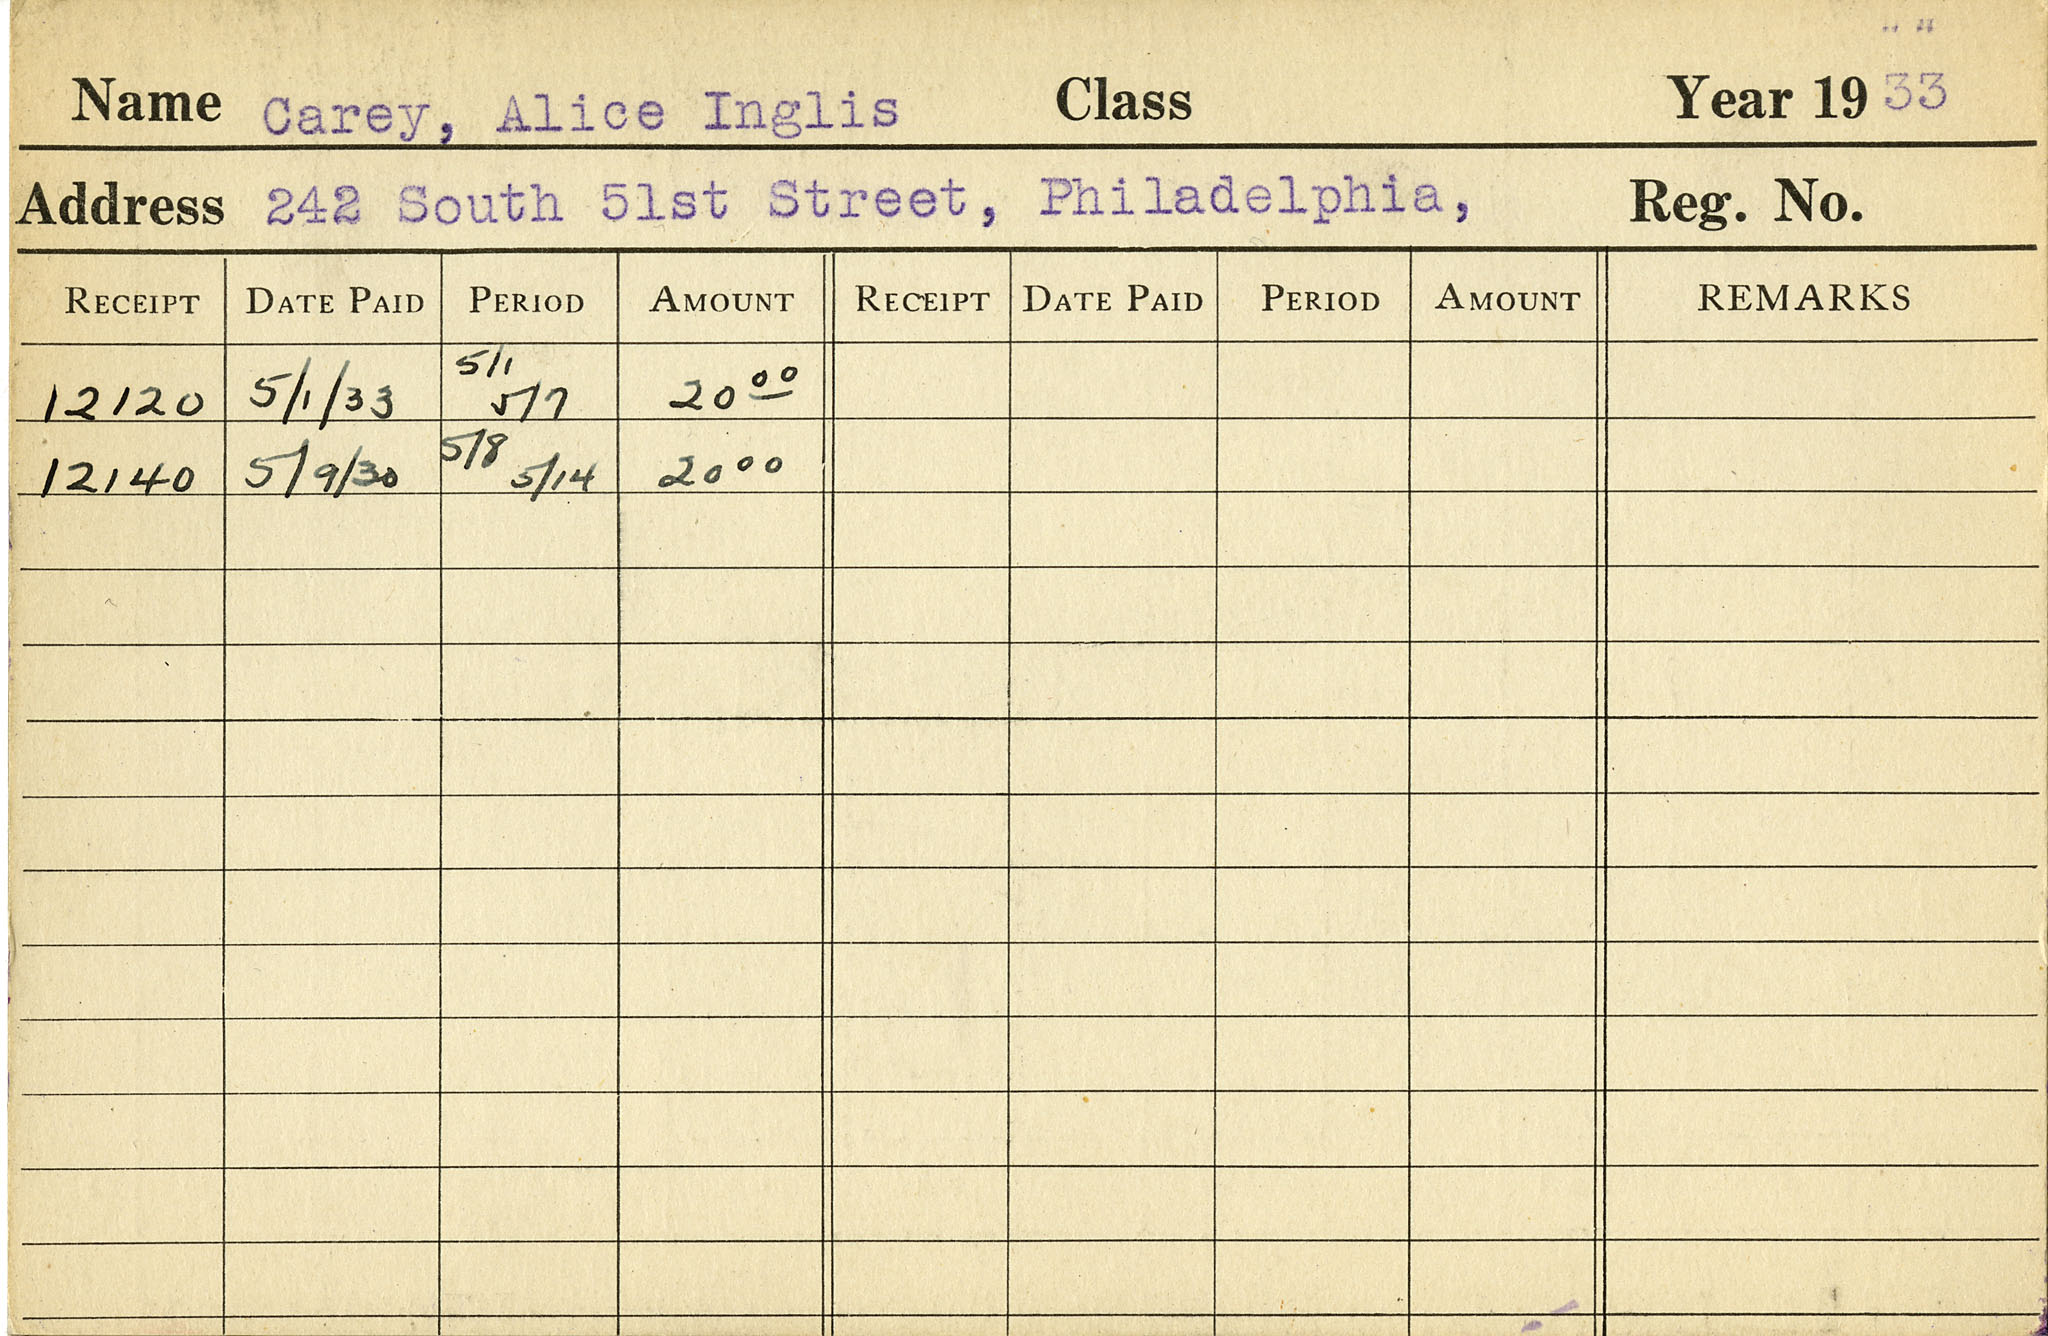 Name Carey, Alice Inglis Class Year 19 33
Address 242 South 51st Street, Philadelphia, Reg. No.
RECEIPT DATE PAID PERIOD AMOUNT RECEIPT DATE PAID PERIOD AMOUNT REMARKS
12120 5/1/33 5/1 5/7 20 00
12140 5/9/30 5/8 5/14 20 00